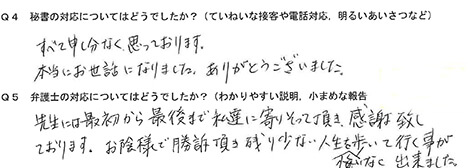 Q4 秘書の対応についてはどうでしたか？（ていねいな接客や電話対応，明るいあいさつなど）
すべて申し分なく思っております。
本当にお世話になりました。ありがとうございました。
Q5 弁護士の対応についてはどうでしたか？（わかりやすい説明，小まめな報告
先生には最初から最後まで私達に寄りそって頂き感謝致し
ております。お陰様で勝訴頂き残り少ない人生を歩いて行く事が
なく出来ました